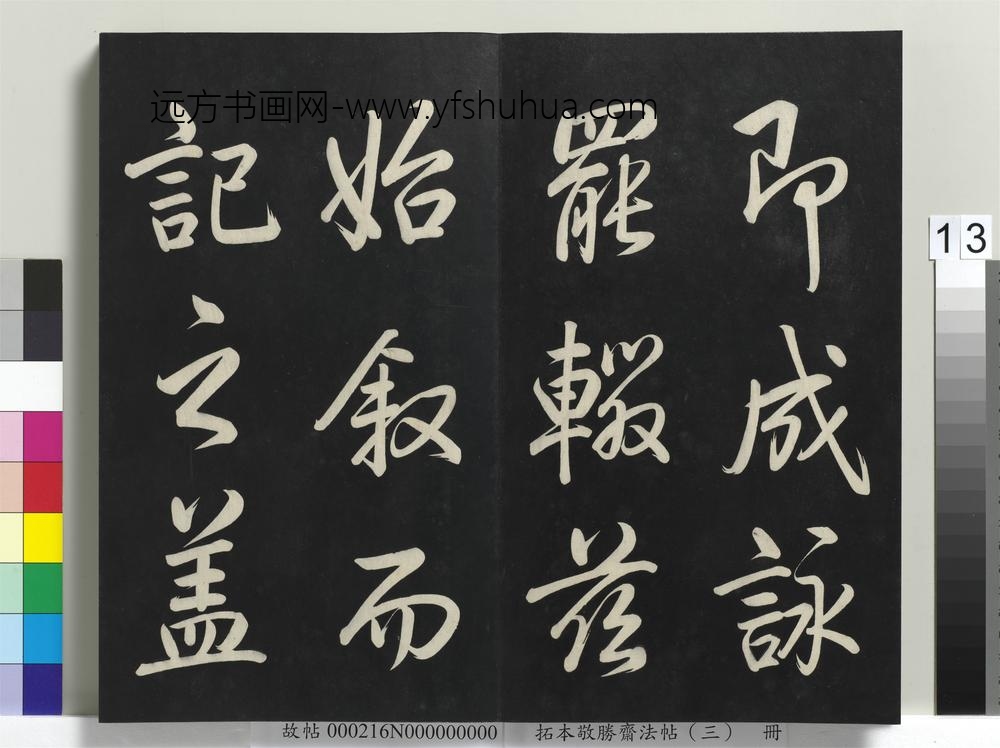 即成詠
罷輟茲
始叙而
記之盖
远方书画网-www.yfshuhua.com
13
故帖 000216N000000000 拓本敬勝齋法帖（三） 冊